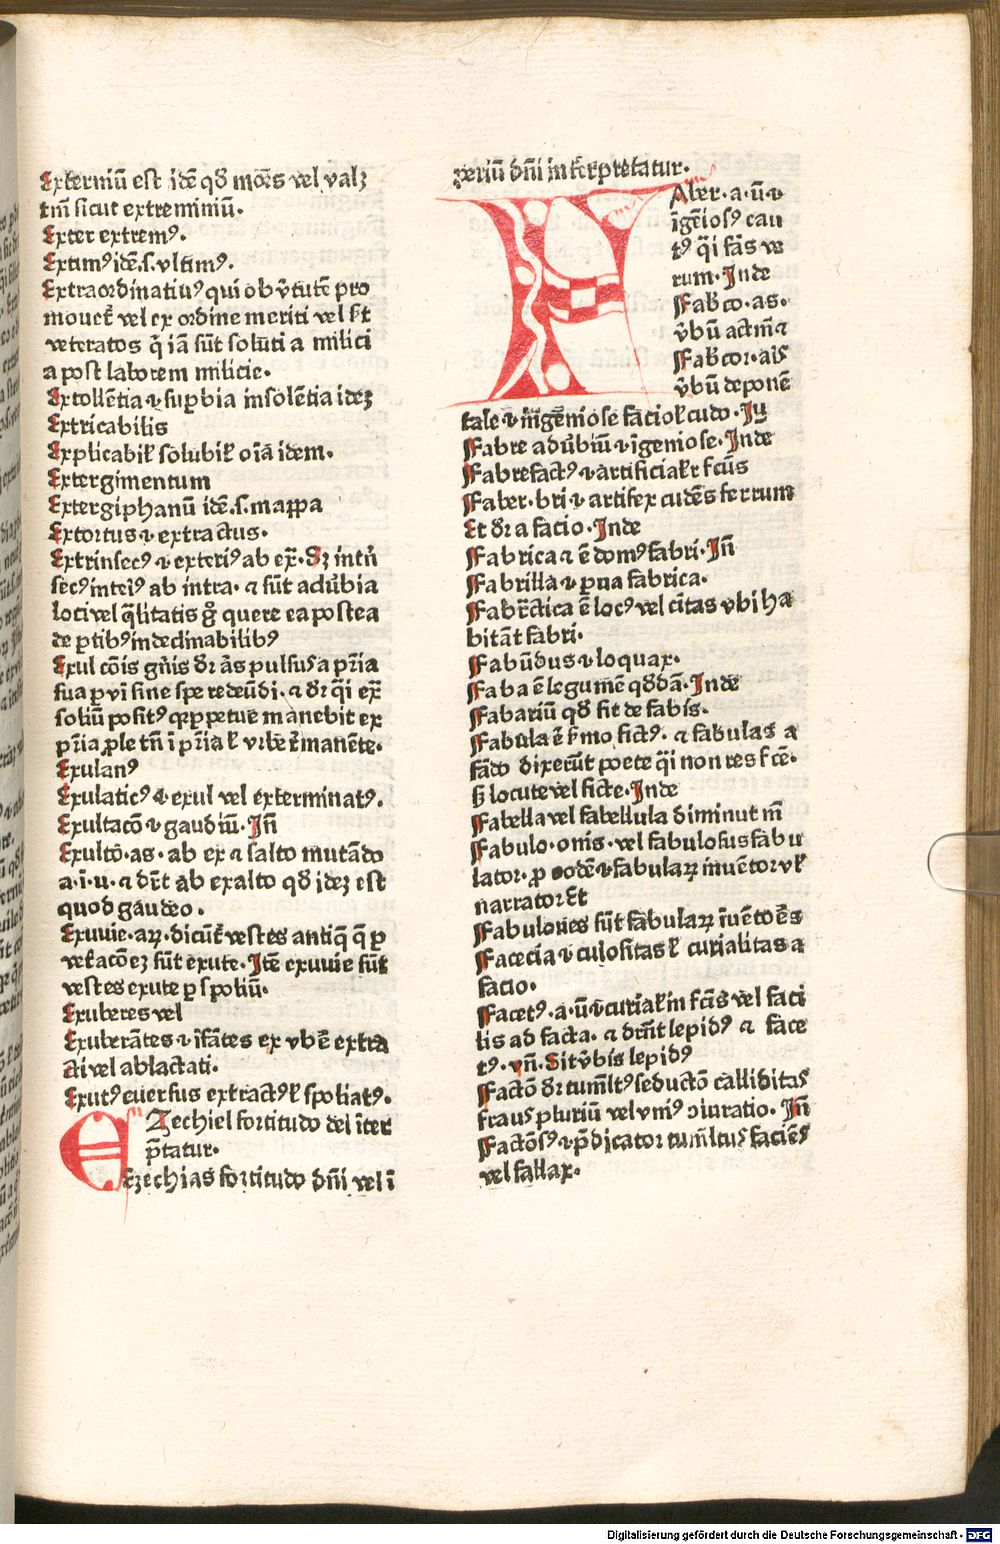 Externiū est idē qd̄ mōes vel valꝫ
tm̄ sicut extreminiū.
Exter extremꝰ.
Extimꝰ idē.s. vltimꝰ.
Extraordinatiuꝰ qui ob v̄tutē pro
mouet̄ vel ex ordine meriti vel st̄
veteratos q̄ iā sūt solūti a milici
a post laborem milicie.
Extollētia ⁊ suꝑbia insolētia ideꝫ
Extricabilis
Explicabił solubił oīā idem.
Extergimentum
Extergiphanū idē.s. mappa
Extortus ⁊ extractus.
Extrinsecꝰ ⁊ exteriꝰ ab ex̄. Sꝫ intr̄
secꝰ inteiꝰ ab intra. ⁊ sūt adūbia
loci vel q̄litatis ḡ quere ea postea
de ꝑtibꝰ indeclinabilibꝰ
Exul cōis gn̄is dr̄ ās pulsus a pr̄ia
sua ꝑ vī sine spe redeūdi. ⁊ dr̄ q̄i ex̄
soliū positꝰ qꝛ ꝑpetue manebit ex
pr̄ia ple tn̄ ī pr̄ia ł vrbe r̄manēte.
Exulanꝰ
Exulaticꝰ ⁊ exul vel exterminatꝰ.
Exultacō ⁊ gaudiū. Jn̄
Exultō.as. ab ex ⁊ salto mutādo
a.ī.u. ⁊ dn̄t ab exalto qd̄ ideꝫ est
quod gaudeo.
Exuvie.aꝝ. dicūt̄ vestes antiq̄ q̄ ꝑ
vet̄acōeꝫ sūt exute. Jtē exuuie sūt
vestes exute ꝑ spoliū.
Exuberes vel
Exuberātes ⁊ īfātes ex vbē extra
cti vel ablactati.
Exutꝰ euersus extractꝰ ł spoliatꝰ.
EZechiel fortitudo dei īter
p̄tatur.
Ezechias fortitudo dn̄i vel ī
ꝑeriū dn̄i int̄erpretatur.
FAber.a.ū.⁊
īgēiosꝰ cau
tꝰ q̄i fās ve
rum. Jnde
Fabꝛco.as.
v̄bū actīū ⁊
Fabꝛcor.aīs
v̄bū deponē
tale ⁊ īgēniose faciorł cudo. Ju
Fabre adūbiū ⁊ īgeniose. Jnde
Fabrefactꝰ ⁊ artificialr̄ fcūs
Faber.bri ⁊ artifex cudēs ferrum
Et dr̄ a facio. Jnde
Fabrica ⁊ ē domꝰ fabri. Jn̄
Fabrilla ⁊ ꝑua fabrica.
Fabrĉtica ē locꝰ vel cīitas vbi ha
bitāt fabri.
Fabūdus ⁊ loquax.
Faba ē legumē qddā. Jnde
Fabariū qd̄ fit de fabis.
Fabula ē sr̄mo fictꝰ. ⁊ fabulas a
fādo dixerūt poete q̄i non res fcē.
sꝫ locute vel ficte. Jnde
Fabella vel fabellula diminut m̄
Fabulo.onis. vel fabulosus fabu
lator. ꝓ eodē ⁊ fabulaꝝ inuētor vł
narrator Et
Fabulones sūt fabulaꝝ īuētoēs
Facecia ⁊ culositas ł curialitas a
facio.
Facetꝰ.a.ū ⁊ curiał in fcīs vel faci
lis ad facta. ⁊ dn̄t lepidꝰ ⁊ face
tꝰ. vn̄. Sit v̄bis lepidꝰ
Factō dr̄ tumltꝰ seductō calliditas
fraus pluriū vel vniꝰ ↄiuratio. Jn̄
Factōsꝰ ⁊ p̄dicator tumltus faciēs
vel fallax.
Digitalisierung gefördert durch die Deutsche Forschungsgemeinschaft - DFG